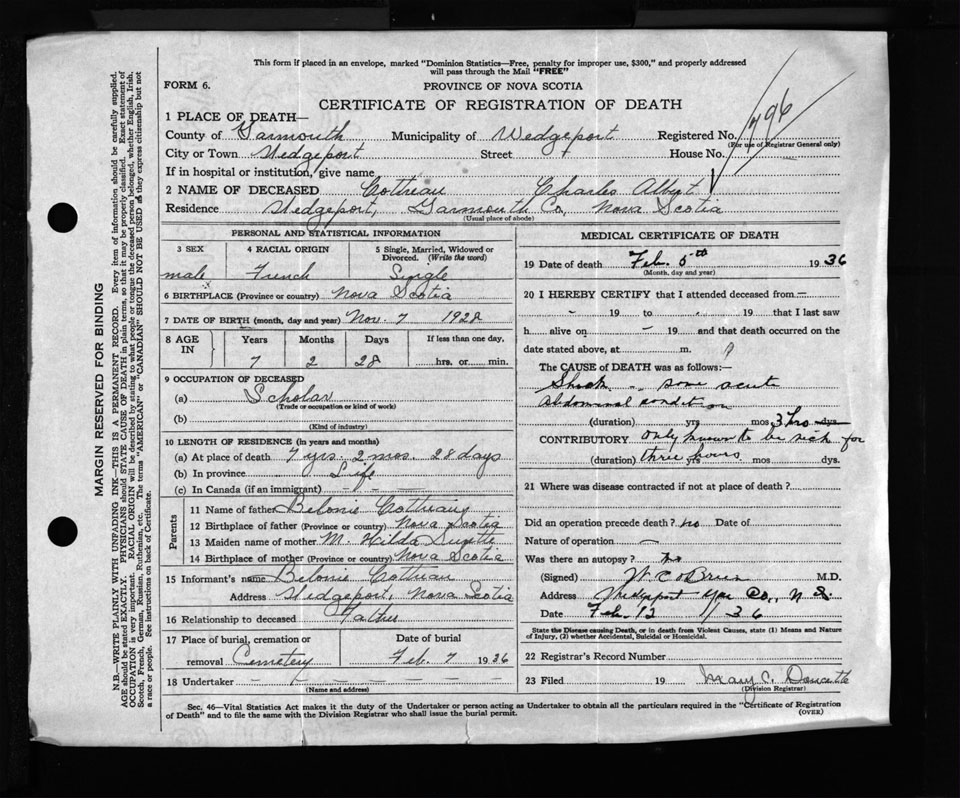 This form if placed in an envelope, marked "Dominion Statistics—Free, penalty for improper use, $300," and properly addressed
will pass through the Mail "FREE"
FORM 6.
PROVINCE OF NOVA SCOTIA
CERTIFICATE OF REGISTRATION OF DEATH
1 PLACE OF DEATH—
County of Yarmouth Municipality of Wedgeport Registered No. 1796
(For use of Registrar General only)
City or Town Wedgeport Street House No.
If in hospital or institution, give name
2 NAME OF DECEASED Cottreau Charles Albert
Residence Wedgeport, Yarmouth Co, Nova Scotia
(Usual place of abode)
PERSONAL AND STATISTICAL INFORMATION
3 SEX 4 RACIAL ORIGIN 5 Single, Married, Widowed or Divorced. (Write the word)
male French Single
6 BIRTHPLACE (Province or country) Nova Scotia
7 DATE OF BIRTH (month, day and year) Nov. 7 1928
8 AGE IN Years Months Days If less than one day,
7 2 28 hrs. or min.
9 OCCUPATION OF DECEASED
(a) Scholar
(Trade or occupation or kind of work)
(b)
(Kind of industry)
10 LENGTH OF RESIDENCE (in years and months)
(a) At place of death 7 yrs. 2 mos. 28 days
(b) In province Life
(c) In Canada (if an immigrant) - - -
Parents
11 Name of father Belonie Cottreau
12 Birthplace of father (Province or country) Nova Scotia
13 Maiden name of mother M. Hilda
14 Birthplace of mother (Province or country) Nova Scotia
15 Informant's name Belonie Cottreau
Address Wedgeport, Nova Scotia
16 Relationship to deceased Father
17 Place of burial, cremation or removal Cemetery Date of burial Feb. 7 1936
18 Undertaker - - - -
(Name and address)
MEDICAL CERTIFICATE OF DEATH
19 Date of death Feb. 5th 1936
(Month, day and year)
20 I HEREBY CERTIFY that I attended deceased from —
- 19 to - 19 that I last saw
h alive on - 19 and that death occurred on the
date stated above, at m.
The CAUSE OF DEATH was as follows:—
Shock - some acute
abdominal condition
(duration) yrs mos 3 hrs dys
CONTRIBUTORY only known to be sick for
(duration) three hours yrs mos dys.
21 Where was disease contracted if not at place of death?
Did an operation precede death? no Date of
Nature of operation —
Was there an autopsy? no
(Signed) W C O'Brien M.D.
Address Wedgeport Yar Co., N S.
Date Feb. 12 / 36
State the Disease causing Death, or in death from Violent Causes, state (1) Means and Nature
of Injury, (2) whether Accidental, Suicidal or Homicidal.
22 Registrar's Record Number
23 Filed 19 Mary C. Doucette
(Division Registrar)
Sec. 46—Vital Statistics Act makes it the duty of the Undertaker or person acting as Undertaker to obtain all the particulars required in the "Certificate of Registration
of Death" and to file the same with the Division Registrar who shall issue the burial permit.
(OVER)
MARGIN RESERVED FOR BINDING
N.B.—WRITE PLAINLY WITH UNFADING INK—THIS IS A PERMANENT RECORD. Every item of information should be carefully supplied.
AGE should be stated EXACTLY. PHYSICIANS should STATE CAUSE OF DEATH in plain terms, so that it may be properly classified. Exact statement of
OCCUPATION is very important. RACIAL ORIGIN will be described by stating to what people or tongue the deceased person belonged, whether English, Irish,
Scotch, French, German, Russian, Ruthenian, etc. The terms "AMERICAN" or "CANADIAN" SHOULD NOT BE USED as they express citizenship but not
a race or people. See instructions on back of Certificate.